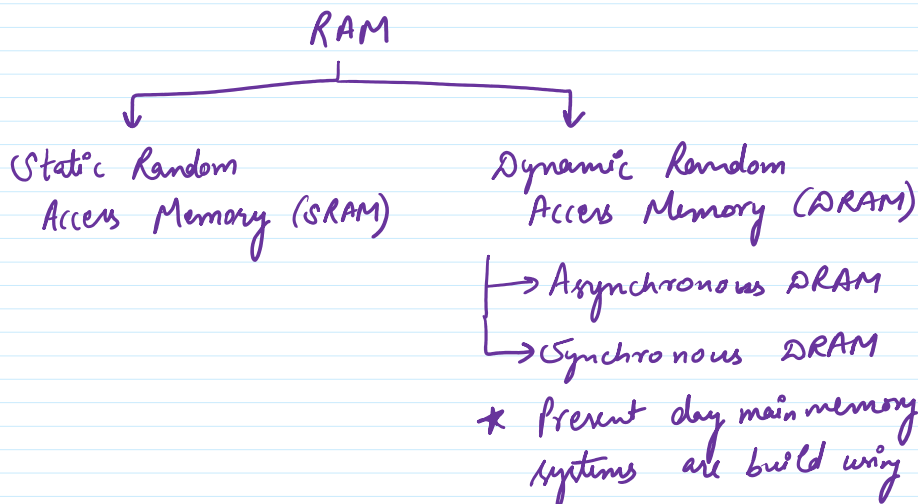 RAM
Static Random
Access Memory (SRAM)
Dynamic Random
Access Memory (DRAM)
→ Asynchronous DRAM
→ Synchronous DRAM
* Present day main memory
systems are build using